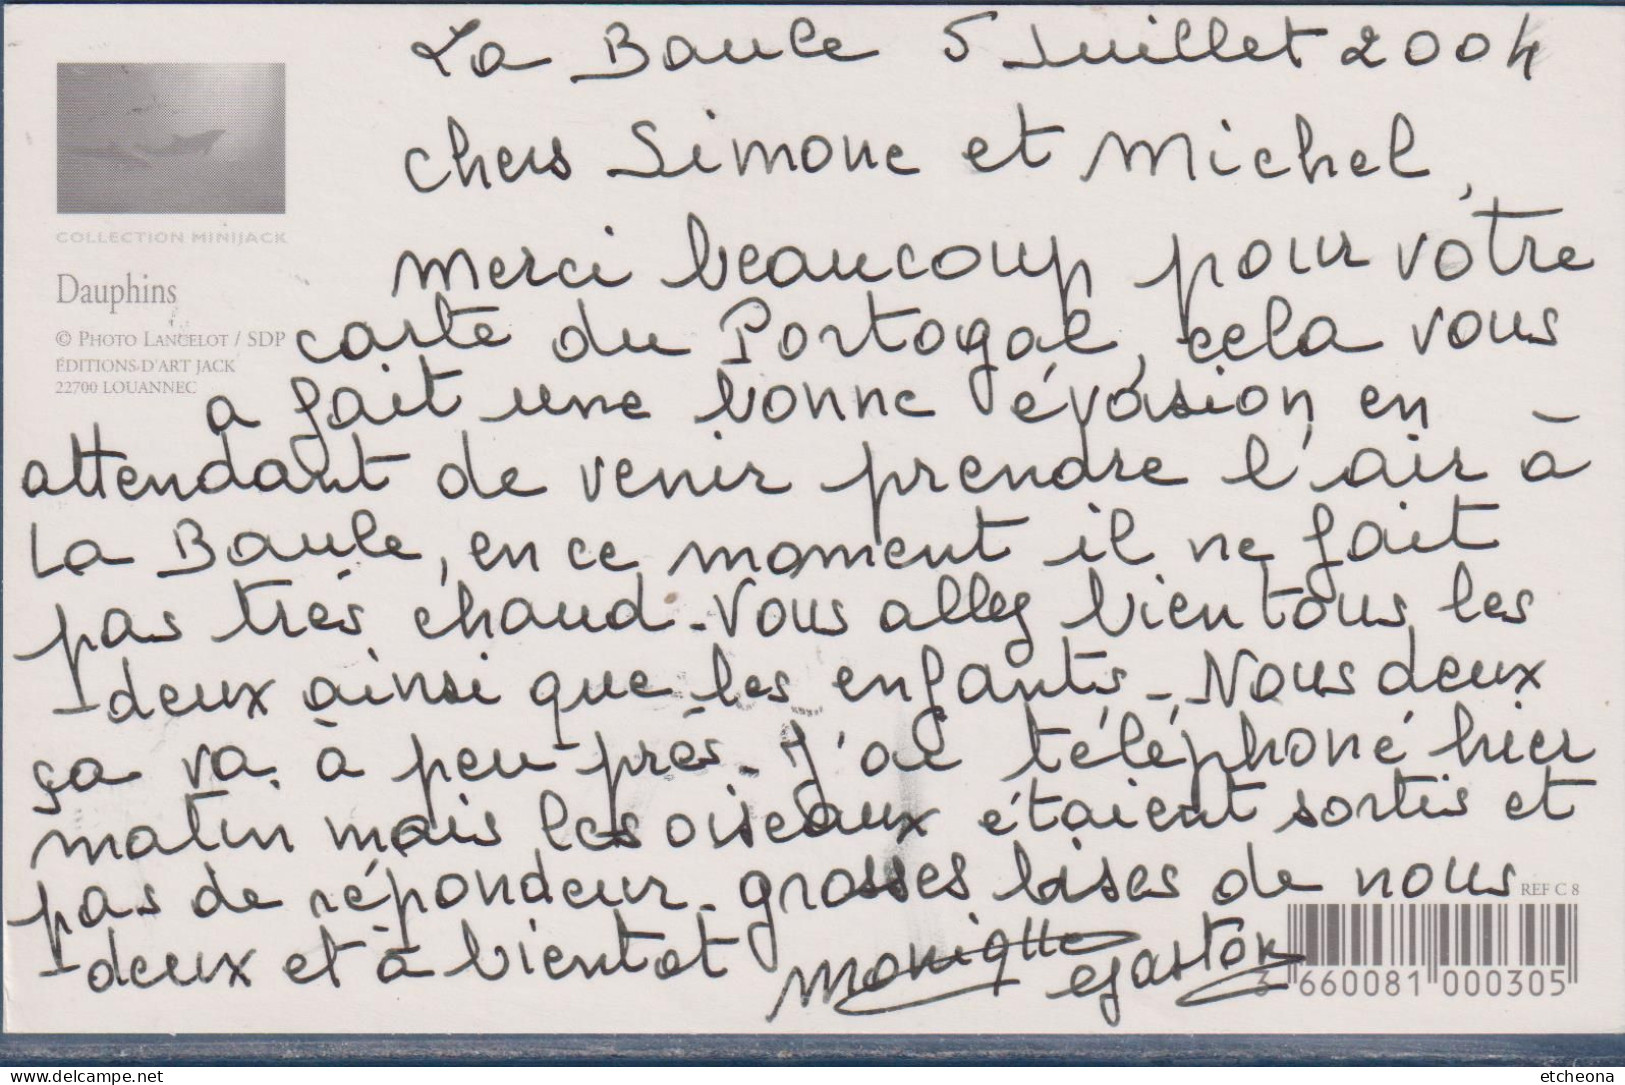 La Baule 5 Juillet 2004
chers Simone et Michel,
merci beaucoup pour votre
carte du Portogal, cela vous
a fait une bonne évasion en
attendant de venir prendre l'air à
La Baule, en ce moment il ne fait
pas très chaud - Vous allez bien tous les
deux ainsi que les enfants - Nous deux
ça va à peu près - J'ai téléphoné hier
matin mais les oiseaux étaient sortis et
pas de répondeur - grosses bises de nous
deux et à bientot Monique Gaston
COLLECTION MINIJACK
Dauphins
© PHOTO LANCELOT / SDP
ÉDITIONS D'ART JACK
22700 LOUANNEC
REF C 8
3 660081 000305
delcampe.net
etcheona